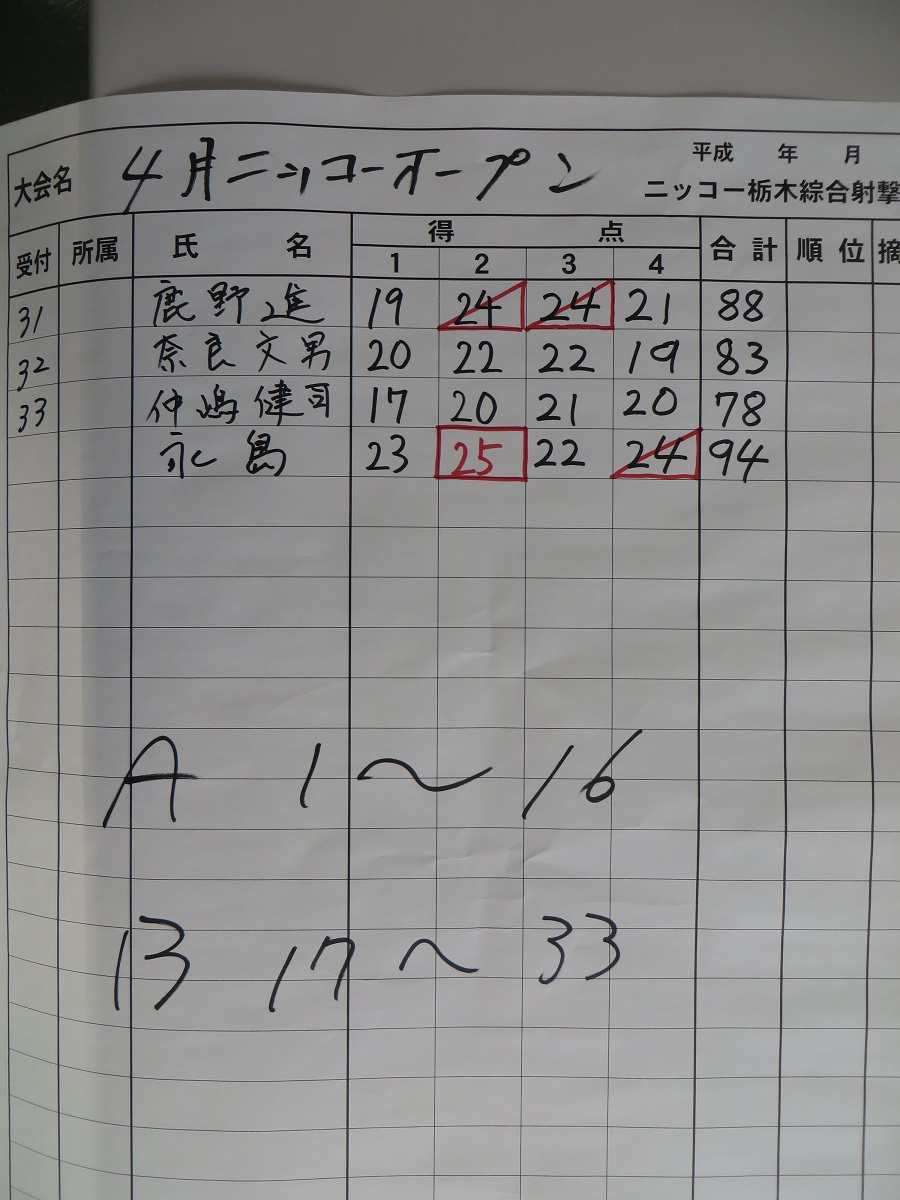 平成 年 月
大会名 4月ニッコーオープン
ニッコー栃木綜合射撃
受付 所属 氏 名 得 点 合計 順位 摘
1 2 3 4
31 鹿野進 19 24 24 21 88
32 奈良文男 20 22 22 19 83
33 仲嶋健司 17 20 21 20 78
永島 23 25 22 24 94
A 1〜16
B 17〜33